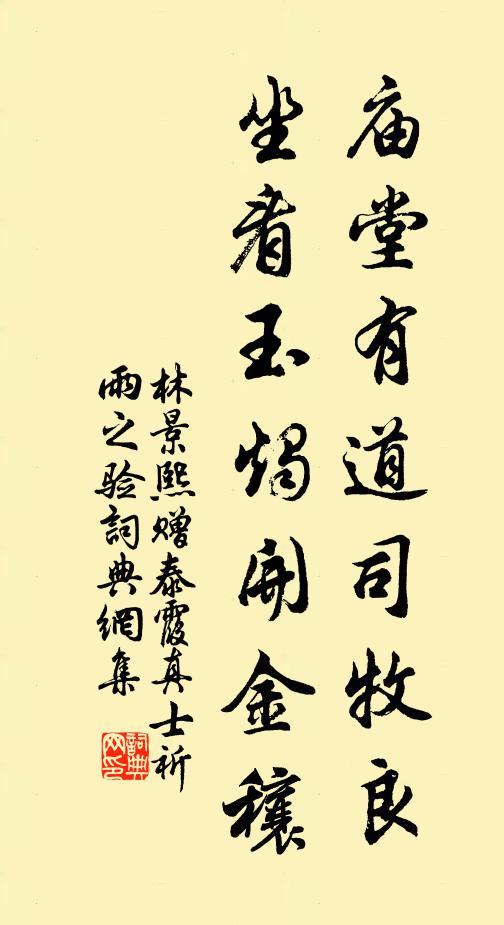 庙堂有道司牧良
坐看玉烛開金穰
林景熙赠泰霞真士祈
雨之验詞典網集
詞典
网印